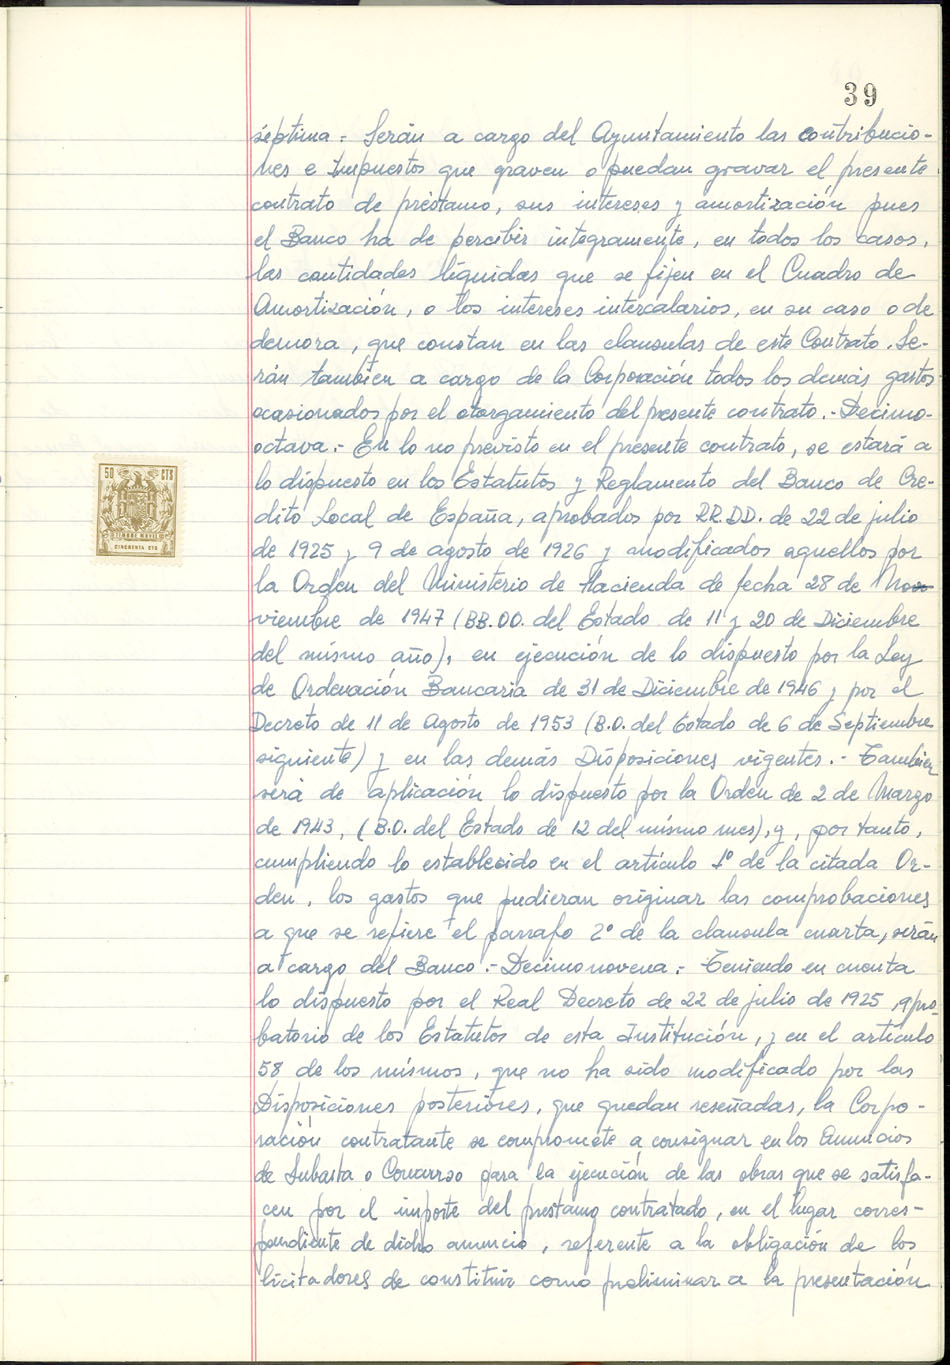 39
séptima = Serán a cargo del Ayuntamiento las contribucio-
nes e Impuestos que graven o puedan gravar el presente
contrato de préstamo, sus intereses y amortización pues
el Banco ha de percibir integramente, en todos los casos,
las cantidades líquidas que se fijen en el Cuadro de
Amortización, o los intereses intercalarios, en su caso o de
demora, que constan en las clausulas de este Contrato. Se-
rán también a cargo de la Corporación todos los demás gastos
ocasionados por el otorgamiento del presente contrato.- Decimo-
octava.- En lo no previsto en el presente contrato, se estará a
lo dispuesto en los Estatutos y Reglamento del Banco de Cre-
dito Local de España, aprobados por RR.DD. de 22 de julio
de 1925 y 9 de agosto de 1926 y modificados aquellos por
la Orden del Ministerio de Hacienda de fecha 28 de No
viembre de 1947 (BB.OO. del Estado de 11 y 20 de Diciembre
del mismo año), en ejecución de lo dispuesto por la Ley
de Ordenación Bancaria de 31 de Diciembre de 1946 y por el
Decreto de 11 de Agosto de 1953 (B.O. del Estado de 6 de Septiembre
siguiente) y en las demás Disposiciones vigentes.- Tambien
será de aplicación lo dispuesto por la Orden de 2 de Marzo
de 1943, (B.O. del Estado de 12 del mismo mes), y, por tanto,
cumpliendo lo establecido en el artículo 1º de la citada Or-
den, los gastos que pudieran originar las comprobaciones
a que se refiere el párrafo 2º de la clausula cuarta, serán
a cargo del Banco.- Decimonovena.- Teniendo en cuenta
lo dispuesto por el Real Decreto de 22 de julio de 1925, apro-
batorio de los Estatutos de esta Institución, y en el artículo
58 de los mismos, que no ha sido modificado por las
Disposiciones posteriores, que quedan reseñadas, la Corpo-
ración contratante se compromete a consignar en los Anuncios
de Subasta o Concurso para la ejecución de las obras que se satisfa-
cen por el importe del prestamo contratado, en el lugar corres-
pondiente de dicho anuncio, referente a la obligación de los
licitadores de constituir como preliminar a la presentación
50 CTS
TIMBRE MOVIL
CINCUENTA CTS